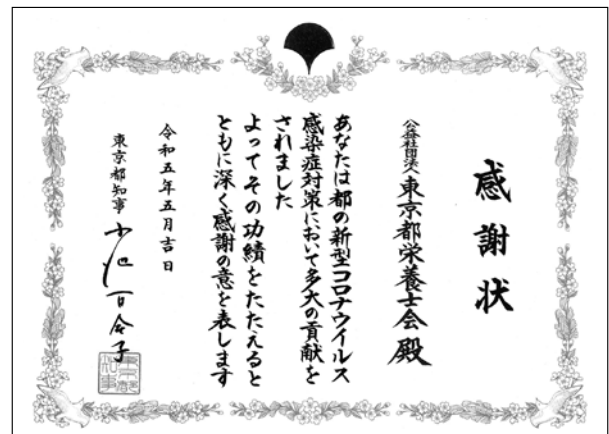 感謝状
公益社団法人東京都栄養士会殿
あなたは都の新型コロナウイルス
感染症対策において多大の貢献を
されました
よってその功績をたたえると
ともに深く感謝の意を表します
令和五年五月吉日
東京都知事 小池百合子
東京都知事